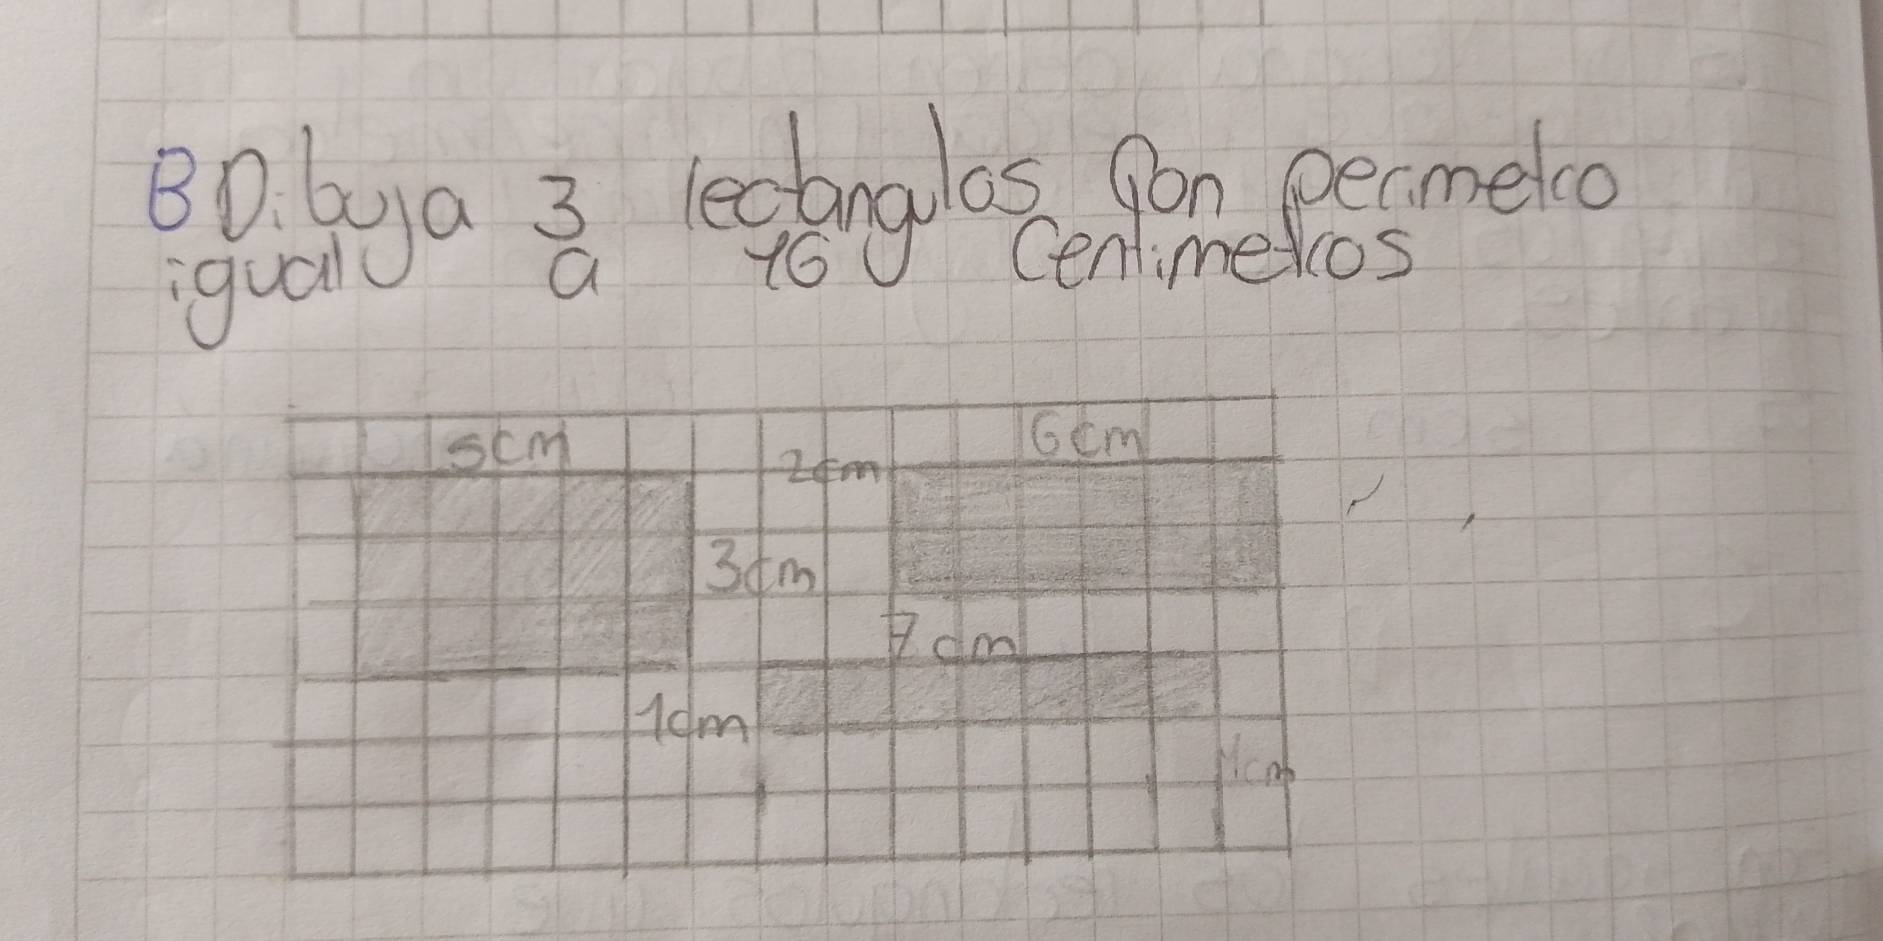 B Dibuja 3 rectangulos con perimetro
igual a 16 centimetros
5cm
6cm
2cm
3cm
7cm
1cm
1cm